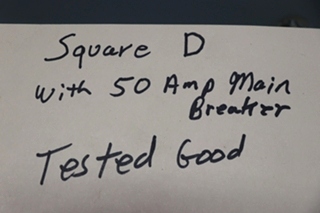 Square D
with 50 Amp Main
Breaker
Tested Good